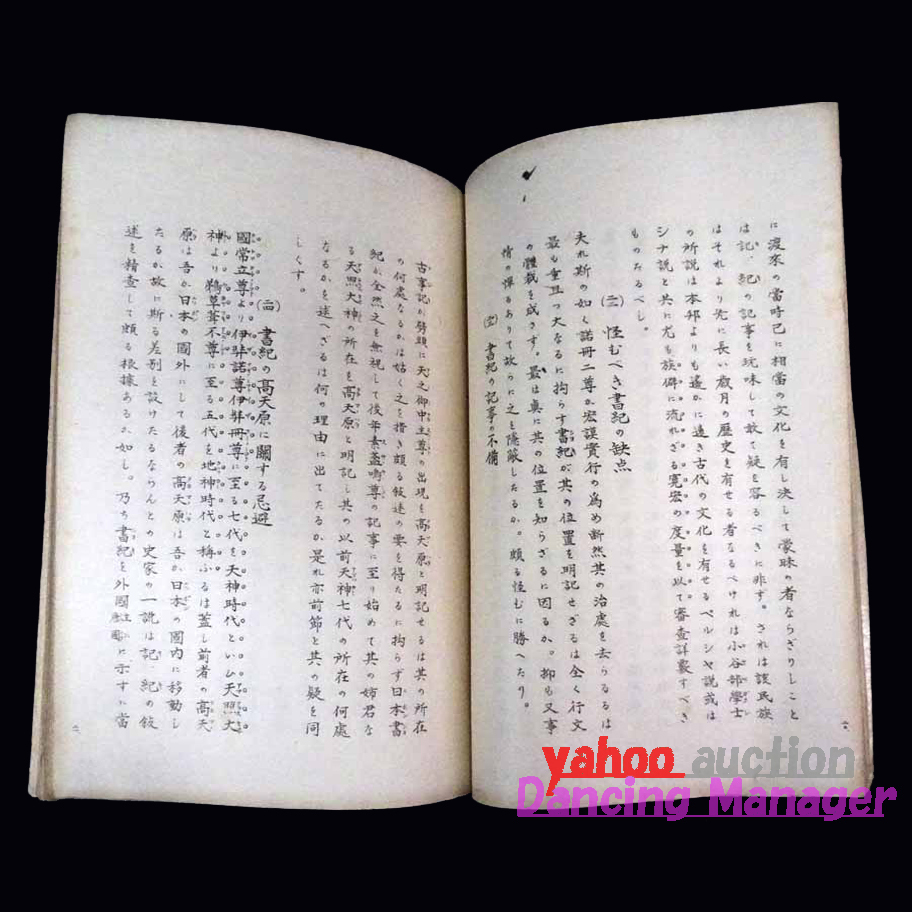 に渡來の當時已に相當の文化を有し決して蒙昧の者ならざりしこと
は記、紀の記事を玩味して敢て疑を容るべきに非ず。されは該民族
はそれより先に長い歳月の歷史を有せる者なるべけれは小谷部學士
の所說は本邦よりも遙かに遠き古代の文化を有せるペルシヤ說或は
シナ說と共に尤も族癖に流れざる寬宏の度量を以て審査詳覈すべき
ものたるべし。
(二) 怪むべき書紀の缺点
夫れ斯の如く諾冊二尊が宏謨實行の爲め断然其の治處を去らるるは
最も重且つ大なるに拘らす書紀が其の位置を明記せざるは全く行文
の體裁を成さず。是は眞に其の位置を知らざるに因るか。抑も又事
情の憚るありて故らに之を隱蔽したるか。頗る怪むに勝へたり。
書紀の記事の不備
古事記が劈頭に天之御中主尊の出現を高天原と明記せるは其の所在
の何處なるかは姑く之を措き頗る敍述の要を得たるに拘らず日本書
紀か全然之を無視して後年素盞嗚尊の記事に至り始めて其の姉君な
る天照大神の所在を高天原と明記し其の以前天神七代の所在の何處
なるかを述へざるは何の理由に出てたるか是れ亦前節と其の疑を同
しくす。
書紀の高天原に關する忌避
國常立尊より伊弉諾尊伊弉冊尊に至る七代を天神時代といひ天照大
神より鵜草葺不尊に至る五代を地神時代と稱ふるは蓋し前者の高天
原は吾か日本の國外にして後者の高天原は吾か日本の國内に移動し
たるか故に斯る差別と設けたるならんとの史家の一說は記、紀の敍
述を精查して頗る根據あるか如し。乃ち書紀を外國に示すに當
yahoo auction
Dancing Manager